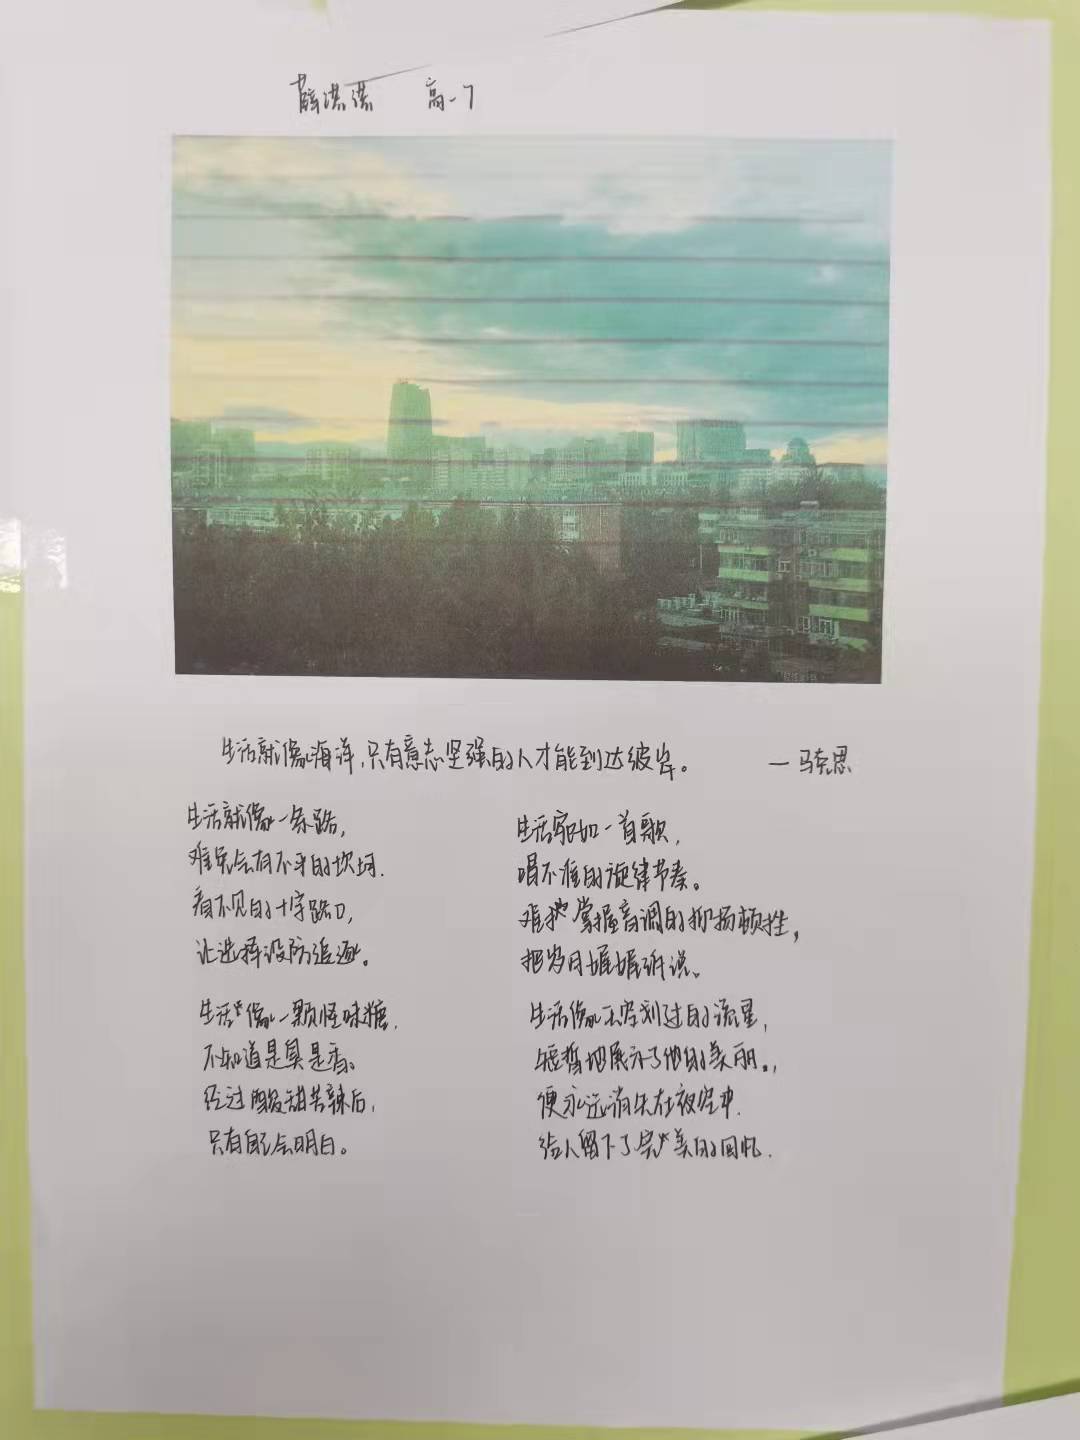 薛淇淇 高一7
生活就像海洋,只有意志坚强的人才能到达彼岸。 一马克思
生活就像一条路,
难免会有不平的坎坷.
看不见的十字路口,
让选择没防追逐。
生活像一颗怪味糖.
不知道是臭是香。
经过酸甜苦辣后,
只有自己会明白。
生活宛如一首歌,
唱不准的旋律节奏。
难以掌握音调的抑扬顿挫,
把岁月娓娓诉说、
生活像天空划过的流星,
短暂地展示了他的美丽。,
便永远消失在夜空中.
给人留下了完美的回忆.